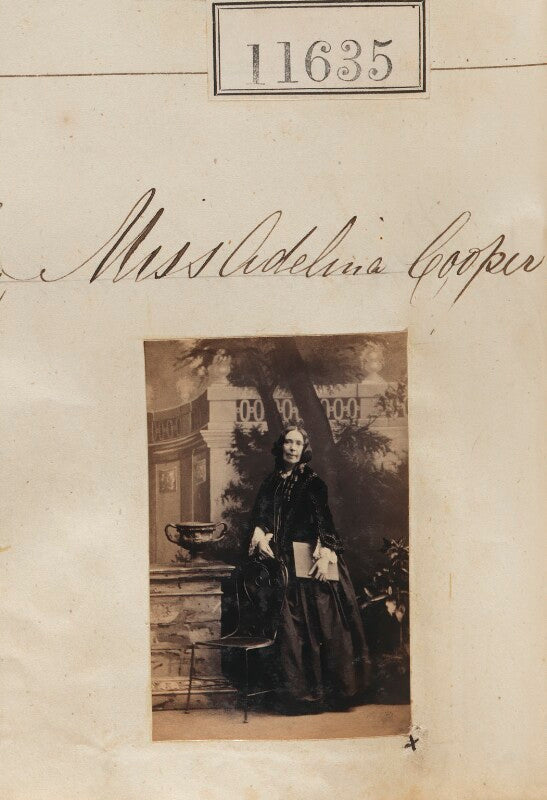 11635
Miss Adelina Cooper
x